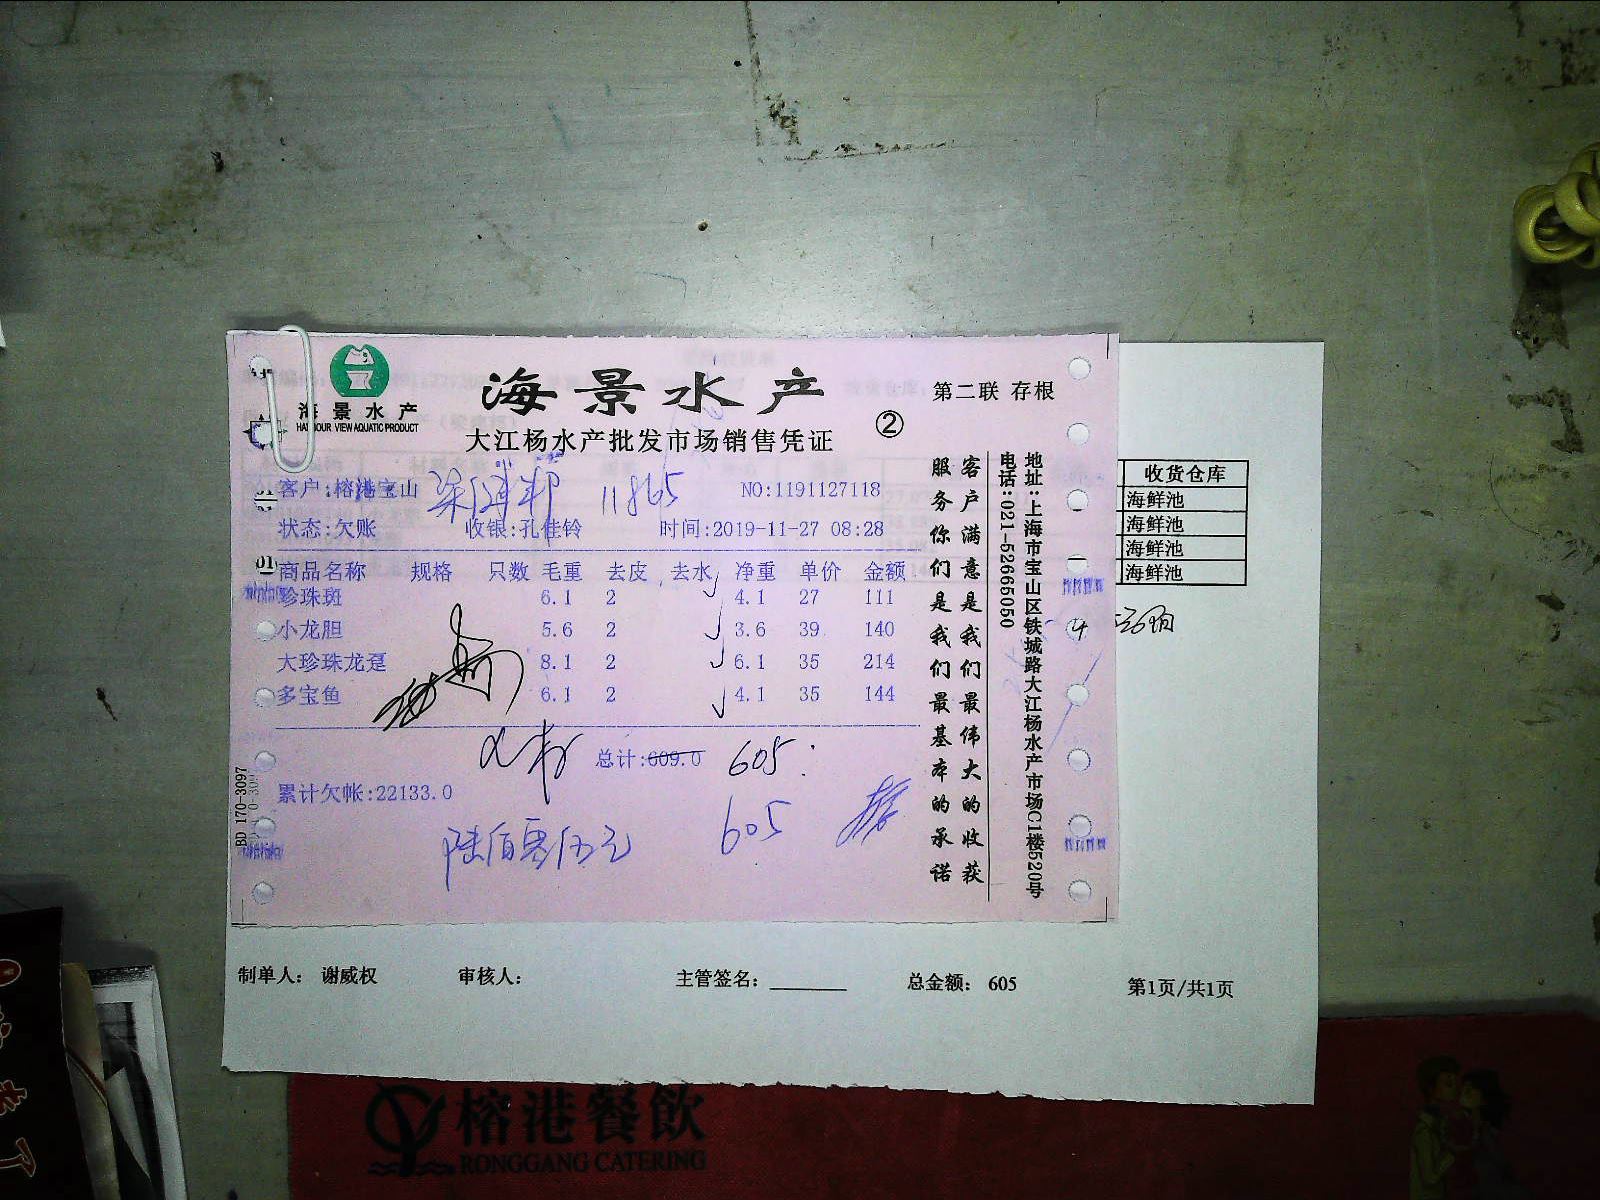 海景水产
HARBOUR VIEW AQUATIC PRODUCT
海景水产
大江杨水产批发市场销售凭证
②
第二联 存根
客户:榕港宝山
11865
NO:1191127118
状态:欠账 收银:孔佳铃 时间:2019-11-27 08:28
商品名称 规格 只数 毛重 去皮 去水 净重 单价 金额
珍珠斑 6.1 2 4.1 27 111
小龙胆 5.6 2 3.6 39 140
大珍珠龙趸 8.1 2 6.1 35 214
多宝鱼 6.1 2 4.1 35 144
总计:609.0 605
累计欠帐:22133.0
陆佰零伍元 605
客户满意是我们最伟大的收获
服务你们是我们最基本的承诺
地址:上海市宝山区铁城路大江杨水产市场C1楼520号
电话:021-52665050
BD 170-3097
收货仓库
海鲜池
海鲜池
海鲜池
海鲜池
制单人: 谢威权 审核人: 主管签名: 总金额: 605 第1页/共1页
榕港餐飲
RONGGANG CATERING